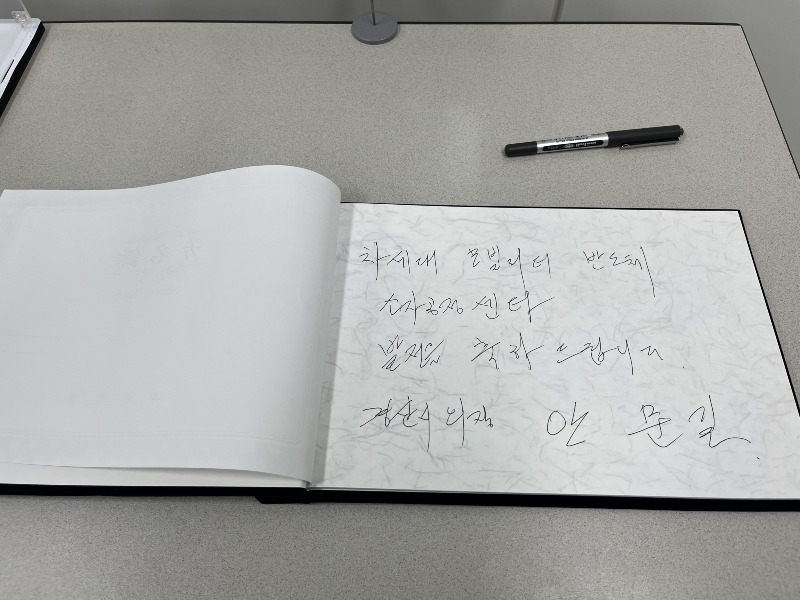 차세대 모빌리티 반도체
소자공정 센터
발전을 축하드립니다.
경산시 의장 안문길.